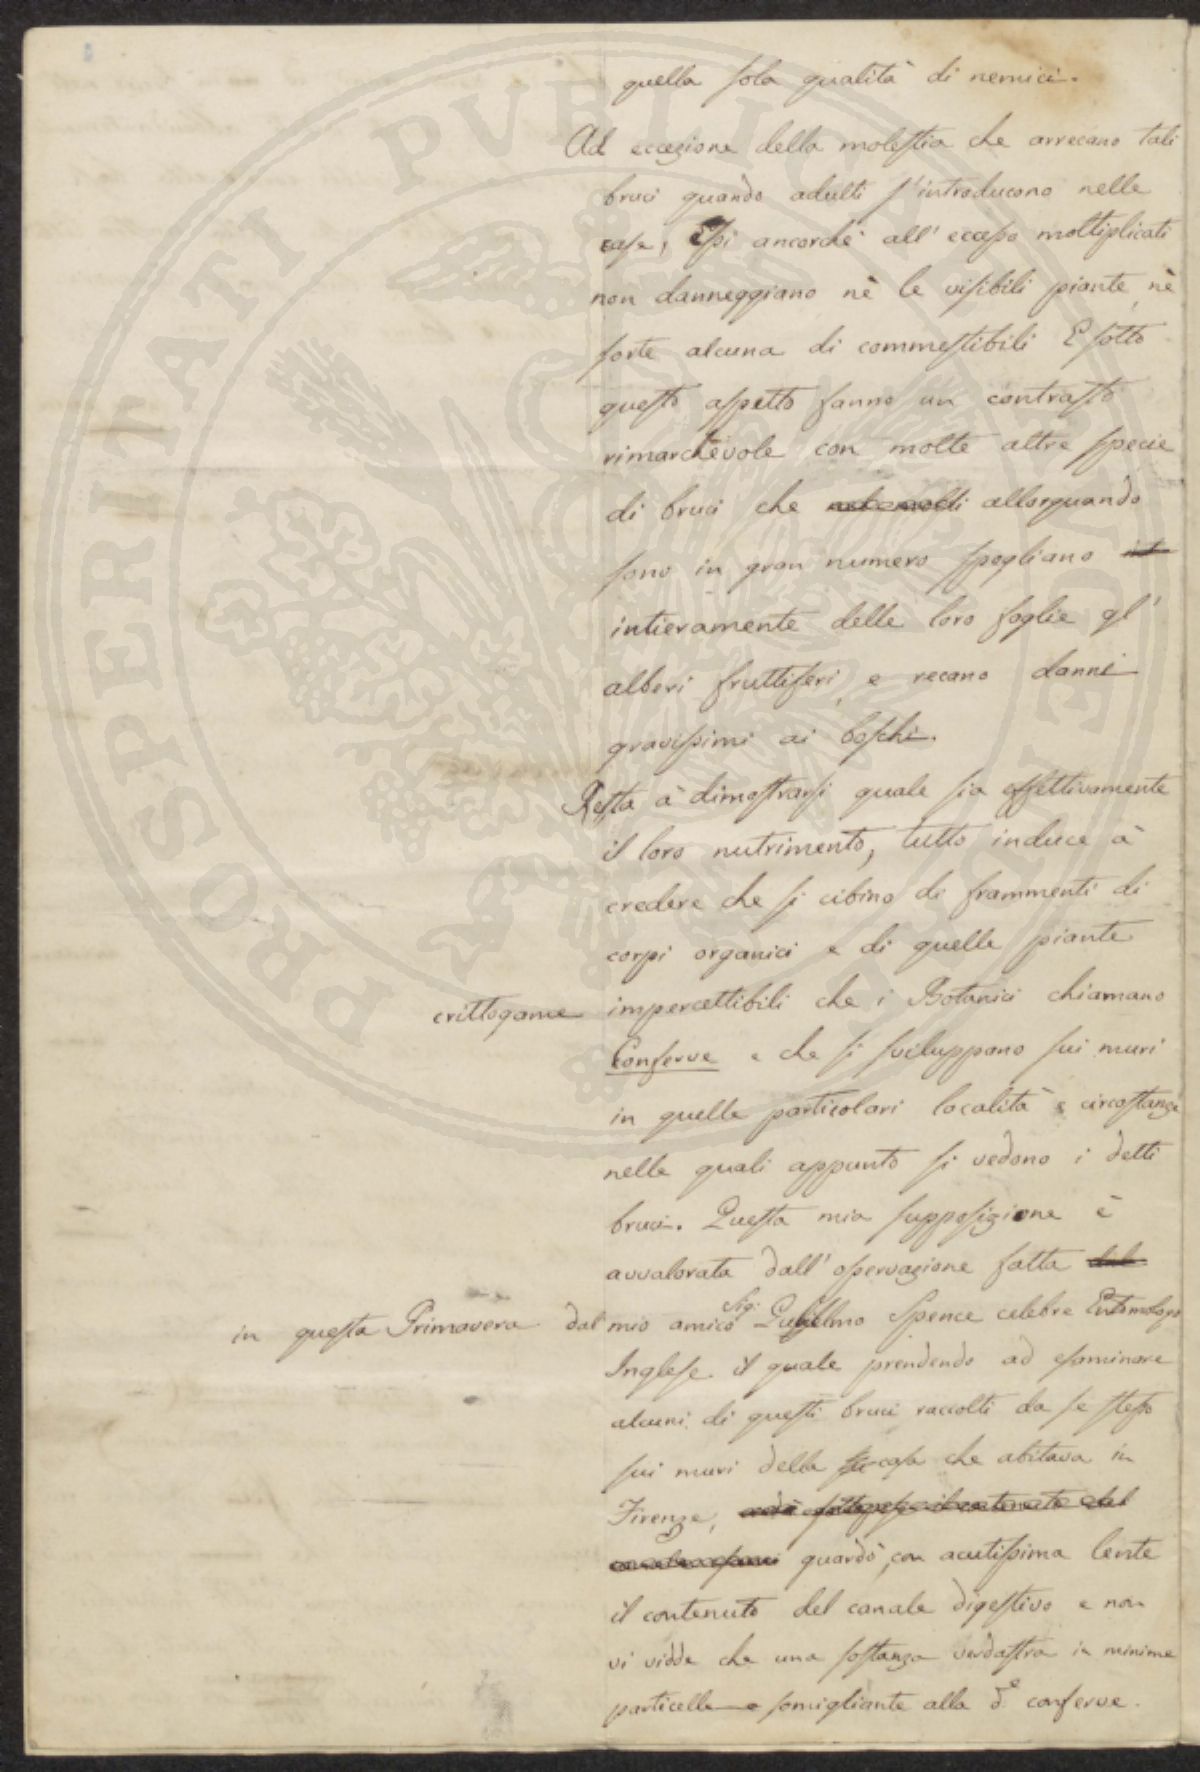 quella sola qualità di nemici.
Ad eccezione della molestia che arrecano tali
bruci quando adulti s'introducono nelle
case, Essi ancorchè all'eccesso moltiplicati
non danneggiano nè le visibili piante, nè
sorte alcuna di commestibili E sotto
questo aspetto fanno un contrasto
rimarchevole con molte altre specie
di bruci che allorquando
sono in gran numero spogliano
intieramente delle loro foglie gl'
alberi fruttiferi, e recano danni
gravissimi ai boschi.
Resta à dimostrarsi quale sia effettivamente
il loro nutrimento, tutto induce à
credere che si cibino di frammenti di
corpi organici e di quelle piante
crittogame impercettibili che i Botanici chiamano
Conferve e che si sviluppano sui muri
in quelle particolari località e circostanze
nelle quali appunto si vedono i detti
bruci. Questa mia supposizione è
avvalorata dall'osservazione fatta dal
in questa Primavera dal mio amico Sig: Guglielmo Spence celebre Entomologo
Inglese il quale prendendo ad esaminare
alcuni di questi bruci raccolti da se stesso
sui muri della casa che abitava in
Firenze, guardò, con acutissima lente
il contenuto del canale digestivo e non
vi vidde che una sostanza verdastra in minime
particelle somigliante alla d.e conferve.
PROSPERITATI PVBLICAE